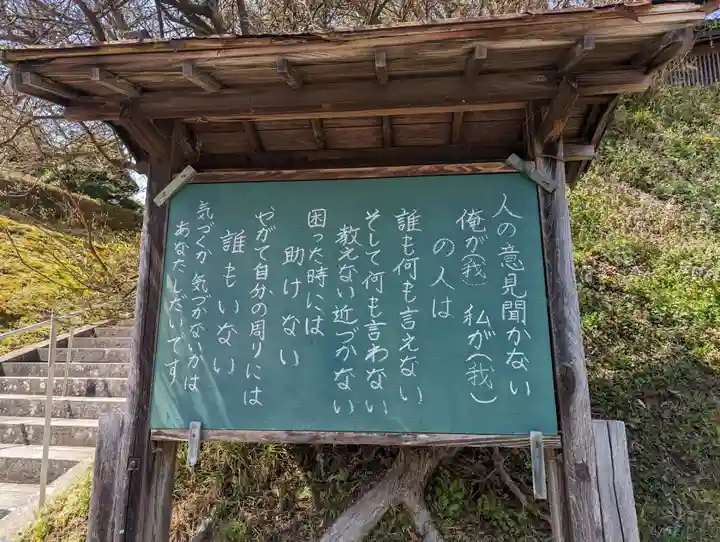 人の意見聞かない
俺が(我) 私が(我)
の人は
誰も何も言えない
そして何も言わない
教えない 近づかない
困った時には
助けない
やがて自分の周りには
誰もいない
気づくか 気づかないかは
あなたしだいです